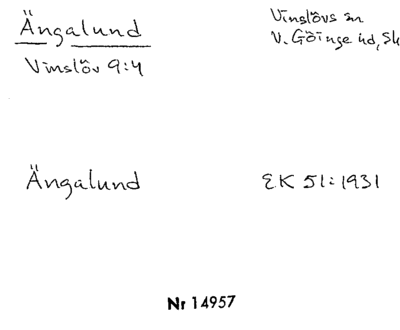 Ängalund
Vinslövs sn
V. Göinge hd, Sk
Vinslöv 9:4
Ängalund
EK 51:1931
Nr 14957